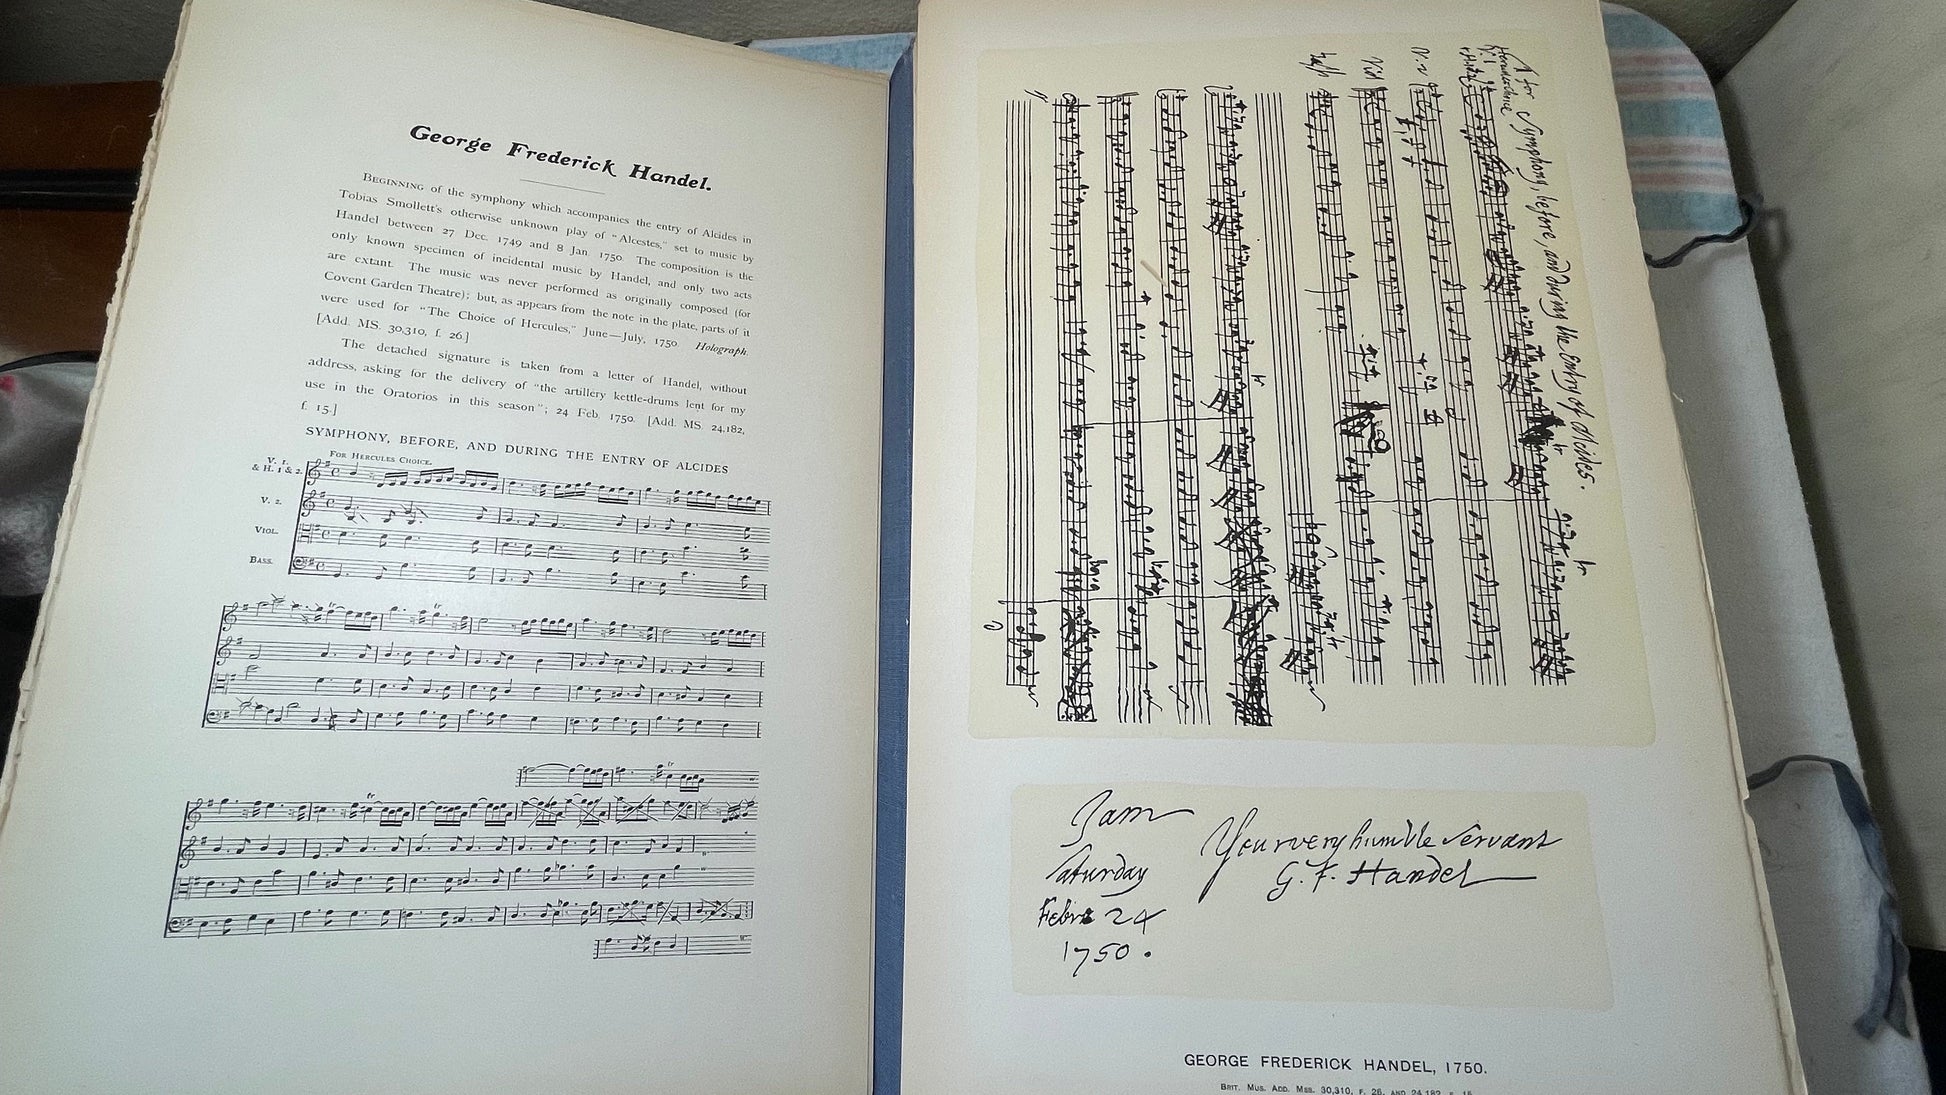 George Frederick Handel.
BEGINNING of the symphony which accompanies the entry of Alcides in
Tobias Smollett's otherwise unknown play of "Alcestes," set to music by
Handel between 27 Dec. 1749 and 8 Jan. 1750. The composition is the
only known specimen of incidental music by Handel, and only two acts
are extant. The music was never performed as originally composed (for
Covent Garden Theatre); but, as appears from the note in the plate, parts of it
were used for "The Choice of Hercules," June—July, 1750. Holograph.
[Add. MS. 30,310, f. 26.]
The detached signature is taken from a letter of Handel, without
address, asking for the delivery of "the artillery kettle-drums lent for my
use in the Oratorios in this season"; 24 Feb. 1750. [Add. MS. 24,182,
f. 15.]
SYMPHONY, BEFORE, AND DURING THE ENTRY OF ALCIDES
FOR HERCULES CHOICE.
V. 1.
& H. 1 & 2.
V. 2.
VIOL.
BASS.
tr
tr
tr
tr
for Symphony, before, and during the Entry of Alcides.
V. 1
V. 2
Viol
I am
Your very humble Servant
Saturday
G. F. Handel
Febr 24
1750.
GEORGE FREDERICK HANDEL, 1750.
BRIT. MUS. ADD. MSS. 30,310, F. 26, AND 24,182, F. 15.